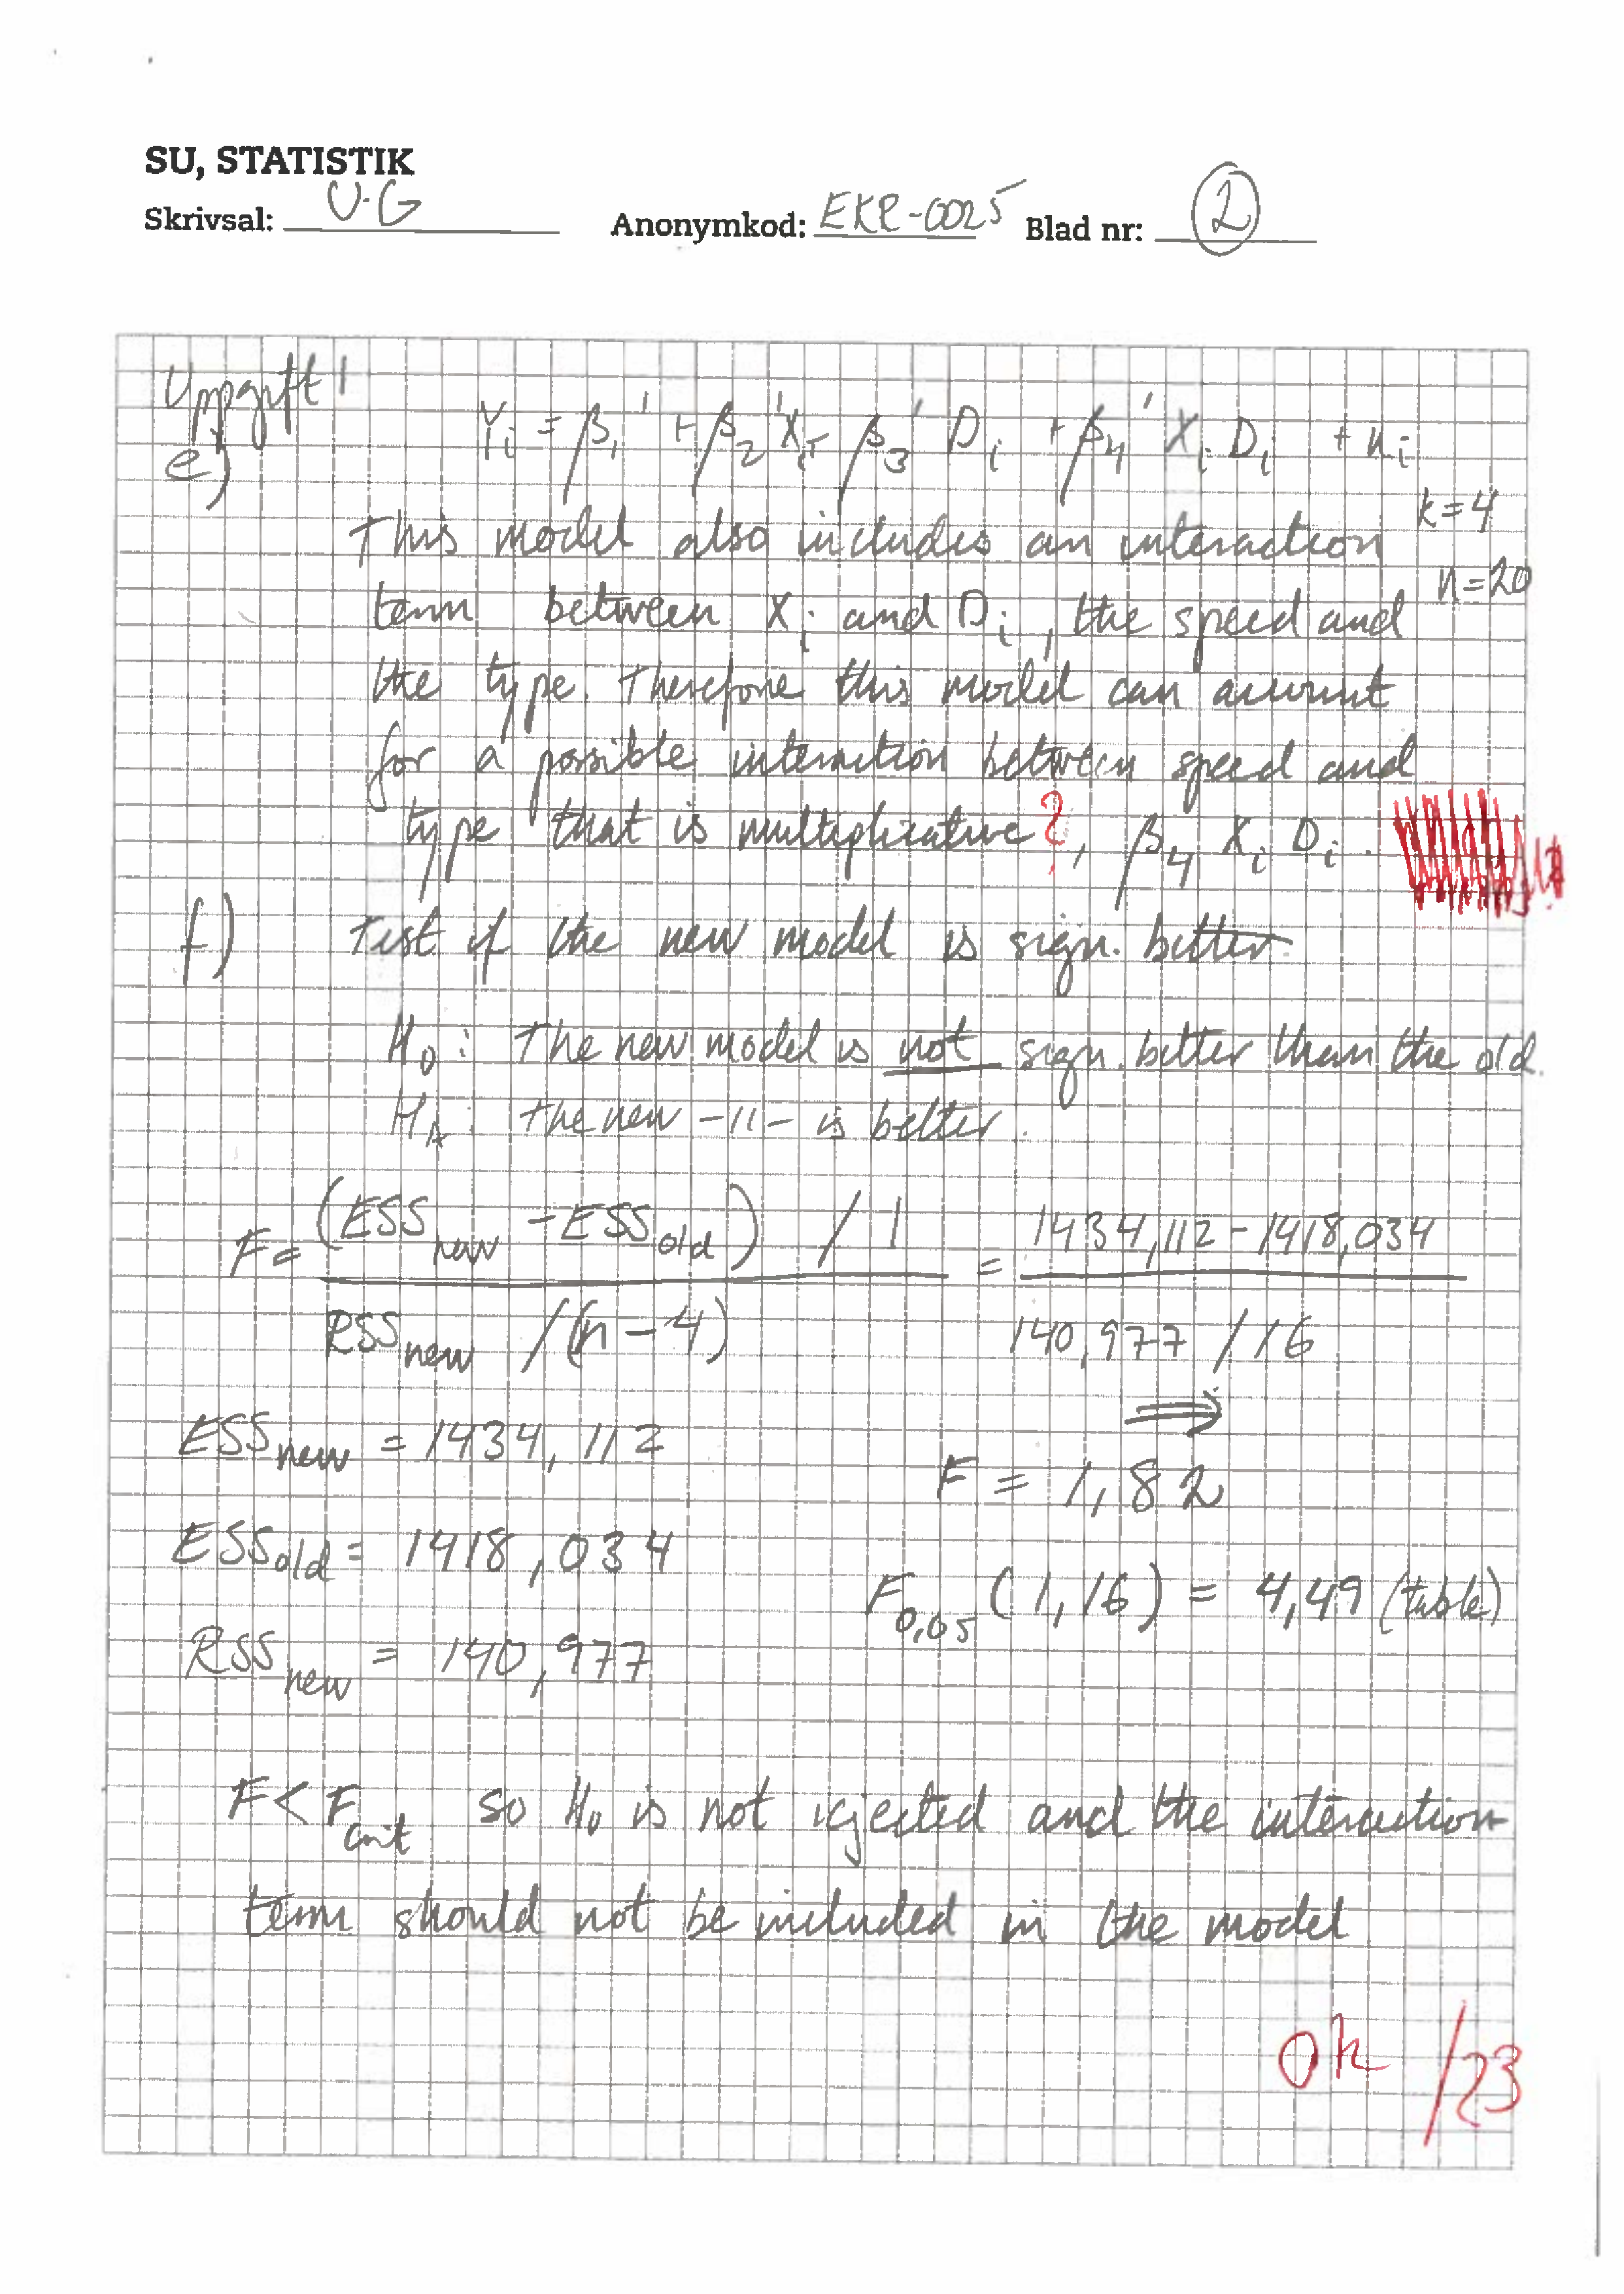 SU, STATISTIK
Skrivsal: U-G Anonymkod: EKR-0025 Blad nr: 2
Uppgift 1
e) Yi = β1' + β2'Xi + β3' Di + β4' Xi Di + ui
k=4
This model also includes an interaction
n=20
term between Xi and Di, the speed and
the type. Therefore this model can account
for a possible interaction between speed and
type that is multiplicative?, β4 Xi Di.
f) Test if the new model is sign. better.
H0: The new model is not sign. better than the old.
HA: The new -11- is better.
F = (ESS new - ESS old) / 1 = 1434,112 - 1418,034
RSS new / (n-4) 140,977 / 16
⇒
ESS new = 1434,112
F = 1,82
ESS old = 1418,034
F0,05 (1,16) = 4,49 (table)
RSS new = 140,977
F < Fcrit so H0 is not rejected and the interaction
term should not be included in the model
Ok /23